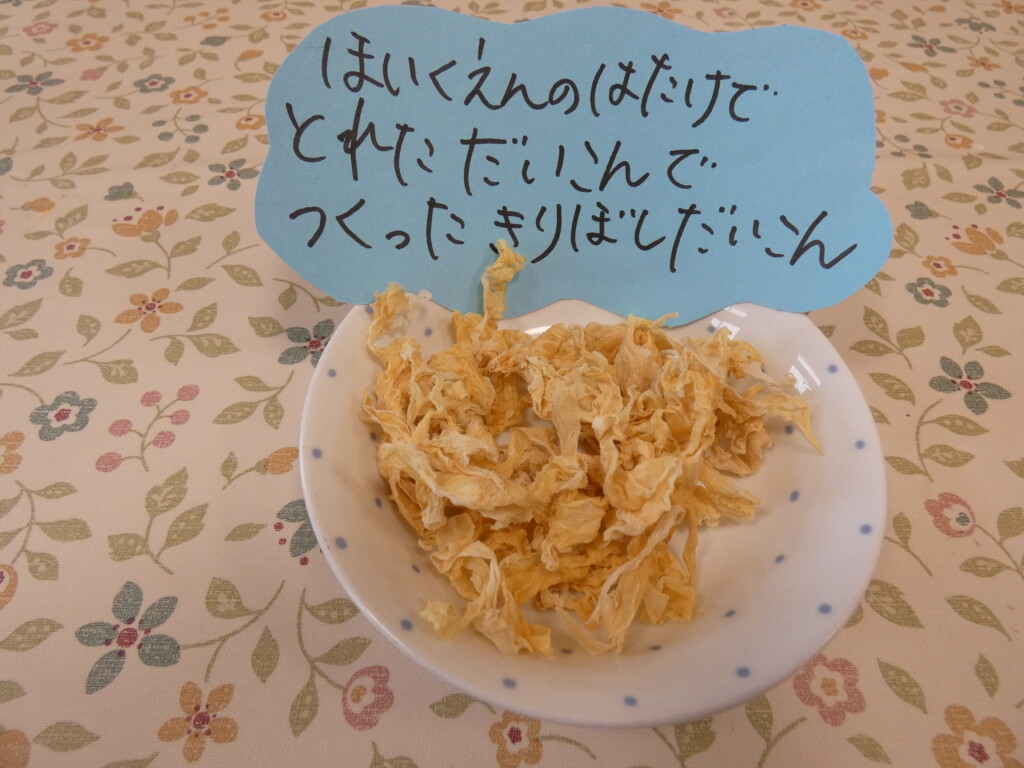 ほいくえんのはたけで
とれただいこんで
つくったきりぼしだいこん